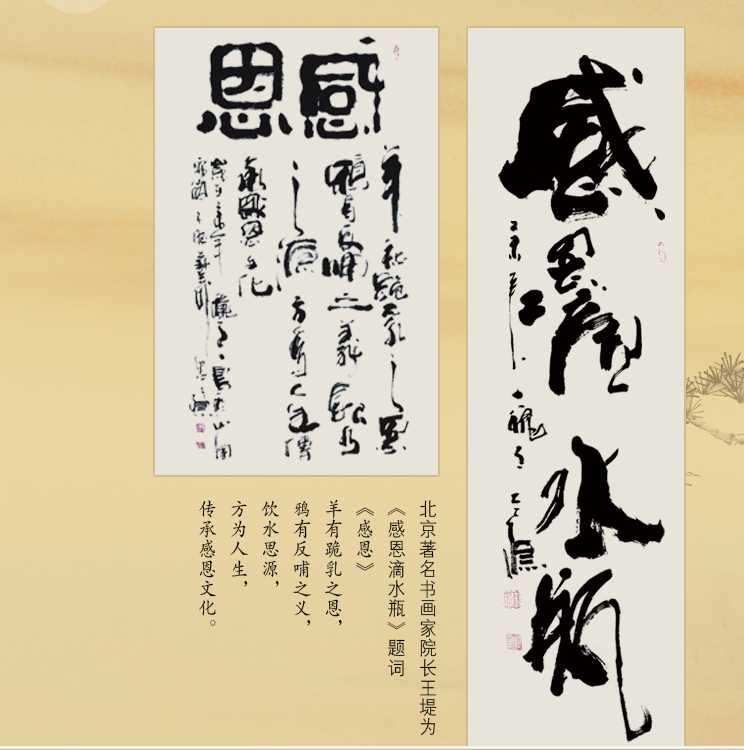 感恩滴水瓶
感恩
羊有跪乳之恩
鸦有反哺之义
饮水思源
方为人生
传承感恩文化
北京著名书画家院长王堤为
《感恩滴水瓶》题词
《感恩》
羊有跪乳之恩，
鸦有反哺之义，
饮水思源，
方为人生，
传承感恩文化。